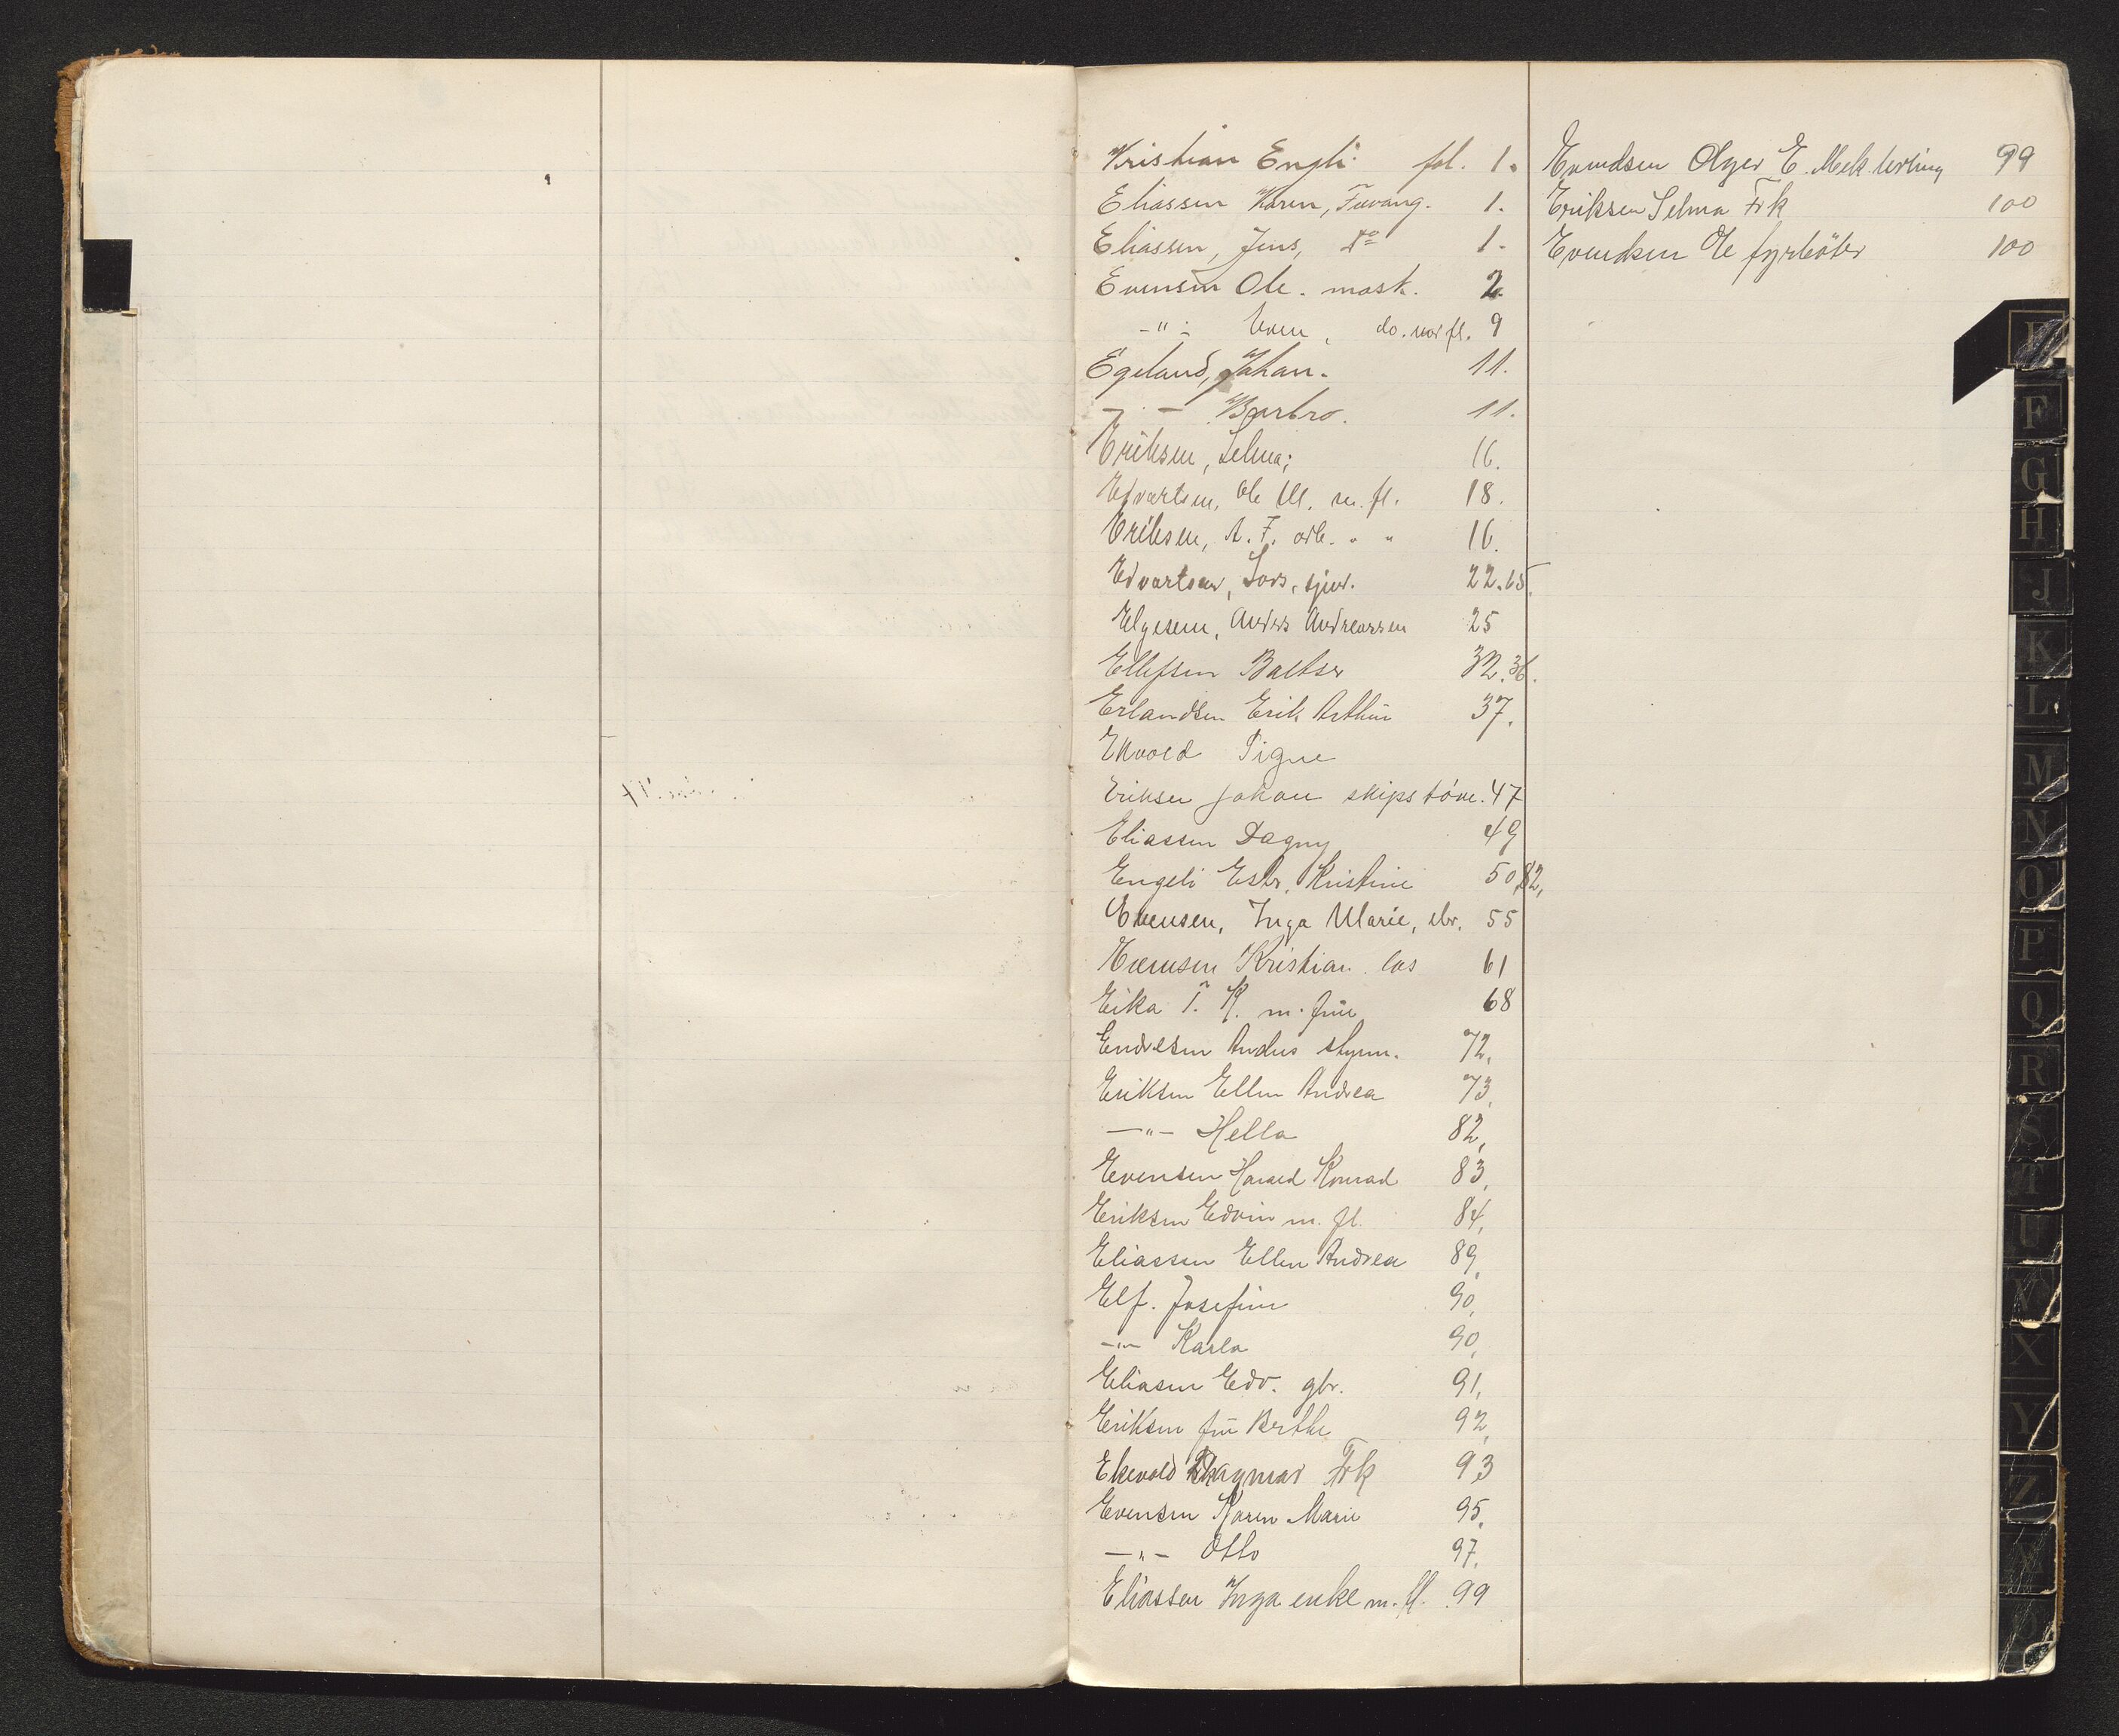 Kristian Engli fol. 1.
Eliassen Karen, Tuvang. 1.
Eliassen, Jens, Do 1.
Evensen Ole. mask. 2.
-"- Even, do. m fl. 9
Egeland, Johan. 11.
- - Barbro. 11.
Eriksen, Selma; 16.
Edvartsen, Ole M. m. fl. 18.
Eriksen, A. F. arb. " " 16.
Edvartsen, Lars, sjm. 22.65.
Elgesem, Anders Andreassen 25
Ellefsen Baltser 32.36.
Erlandsen Erik Arthur 37.
Ekvold Signe
Eriksen Johan skipstøm. 47
Eliassen Dagny 49
Engeli Estr. Kristine 50,82,
Evensen, Inga Marie, 55
Evensen Kristian los 61
Eika T. K. m. frue 68
Endresen Anders styrm. 72,
Eriksen Ellen Andrea 73,
-"- Hella 82,
Evensen Harald Konrad 83,
Eriksen Edvin m. fl. 84,
Eliassen Ellen Andrea 89,
Elf. Josefine 90,
-"- Karla 90,
Eliasen Edv. gbr. 91,
Eriksen fru Berthe 92,
Ekevold Dagmar Frk 93
Evensen Karen Marie 95,
-"- Otto 97,
Eliassen Inga enke m. fl. 99
Evendsen Olger E. Mek lerling 99
Eriksen Selma Frk 100
Evendsen Ole fyrbøter 100
E
F
G
H
J
K
L
M
N
O
P
Q
R
S
T
U
V
X
Y
Z